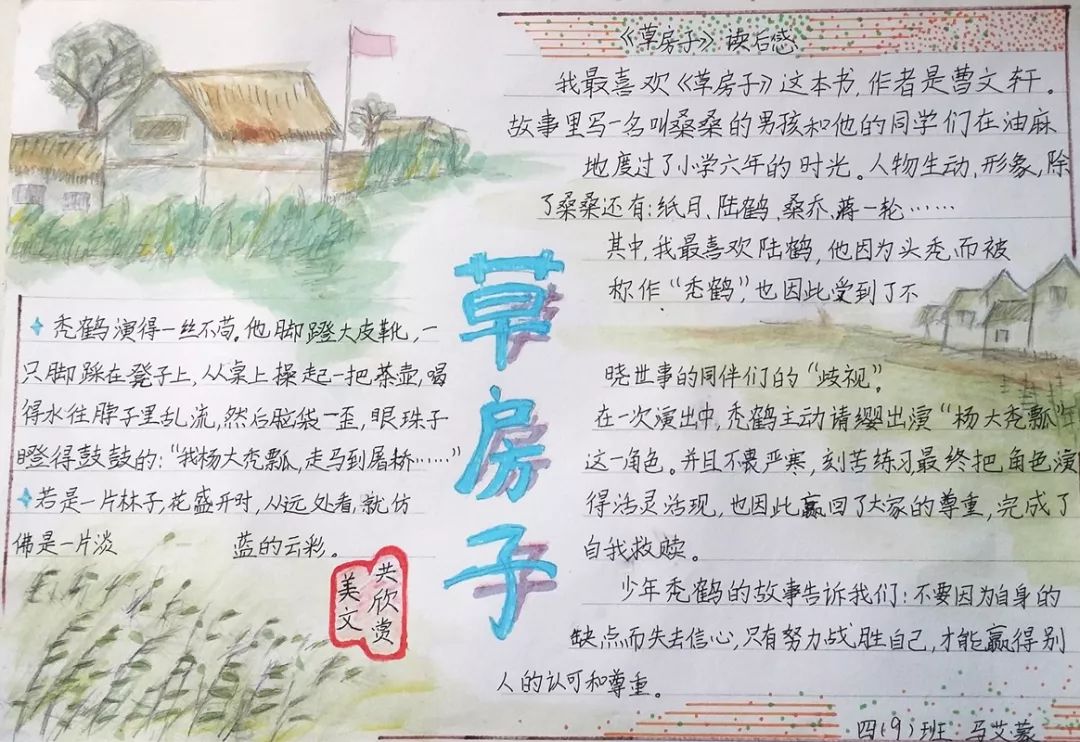 《草房子》读后感
我最喜欢《草房子》这本书,作者是曹文轩。
故事里写一名叫桑桑的男孩和他的同学们在油麻
地度过了小学六年的时光。人物生动、形象,除
了桑桑还有:纸月、陆鹤、桑乔、蒋一轮……
其中,我最喜欢陆鹤,他因为头秃,而被
称作“秃鹤”,也因此受到了不
晓世事的同伴们的“歧视”。
在一次演出中,秃鹤主动请缨出演“杨大秃瓢”
这一角色。并且不畏严寒,刻苦练习最终把角色演
得活灵活现,也因此赢回了大家的尊重,完成了
自我救赎。
少年秃鹤的故事告诉我们:不要因为自身的
缺点而失去信心,只有努力战胜自己,才能赢得别
人的认可和尊重。
四(9)班 马艾蒙
草房子
秃鹤演得一丝不苟。他脚蹬大皮靴,一
只脚踩在凳子上,从桌上操起一把茶壶,喝
得水往脖子里乱流,然后脑袋一歪,眼珠子
瞪得鼓鼓的:“我杨大秃瓢,走马到屠桥……”
若是一片林子,花盛开时,从远处看,就仿
佛是一片淡 蓝的云彩。
美文
共欣赏